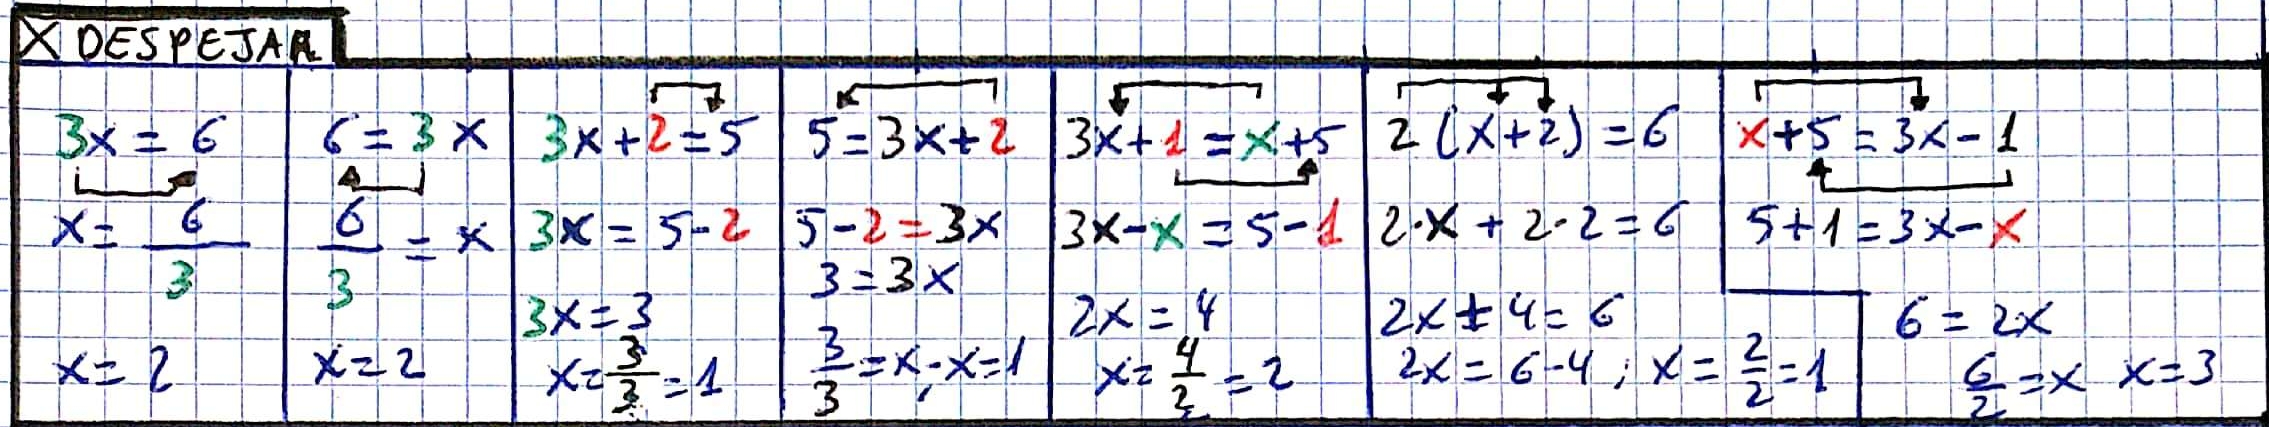 X DESPEJAR
3x = 6
x = 6/3
x = 2
6 = 3x
6/3 = x
x = 2
3x + 2 = 5
3x = 5 - 2
3x = 3
x = 3/3 = 1
5 = 3x + 2
5 - 2 = 3x
3 = 3x
3/3 = x ; x = 1
3x + 1 = x + 5
3x - x = 5 - 1
2x = 4
x = 4/2 = 2
2 (x + 2) = 6
2·x + 2·2 = 6
2x + 4 = 6
2x = 6 - 4 ; x = 2/2 = 1
x + 5 = 3x - 1
5 + 1 = 3x - x
6 = 2x
6/2 = x x = 3